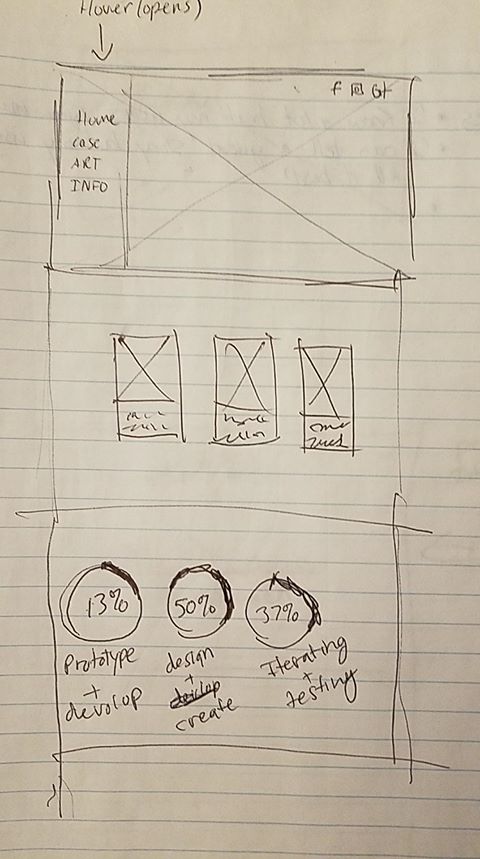 Hover (opens)
f G+
Home
case
ART
INFO
13%
50%
37%
Prototype
+
devolop
design
+
create
Iterating
+
testing